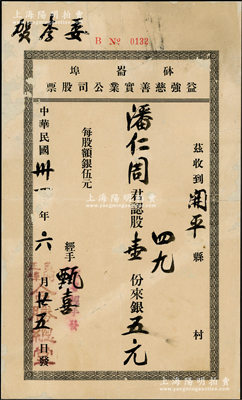 B Nº 0132
砵崙埠
益強慈善實業公司股票
茲收到開平縣 村
潘仁周君認股壹份來銀五元
四九
每股額銀伍元
經手 甄喜
中華民國卅一年六月廿五日發
上海阳明拍卖